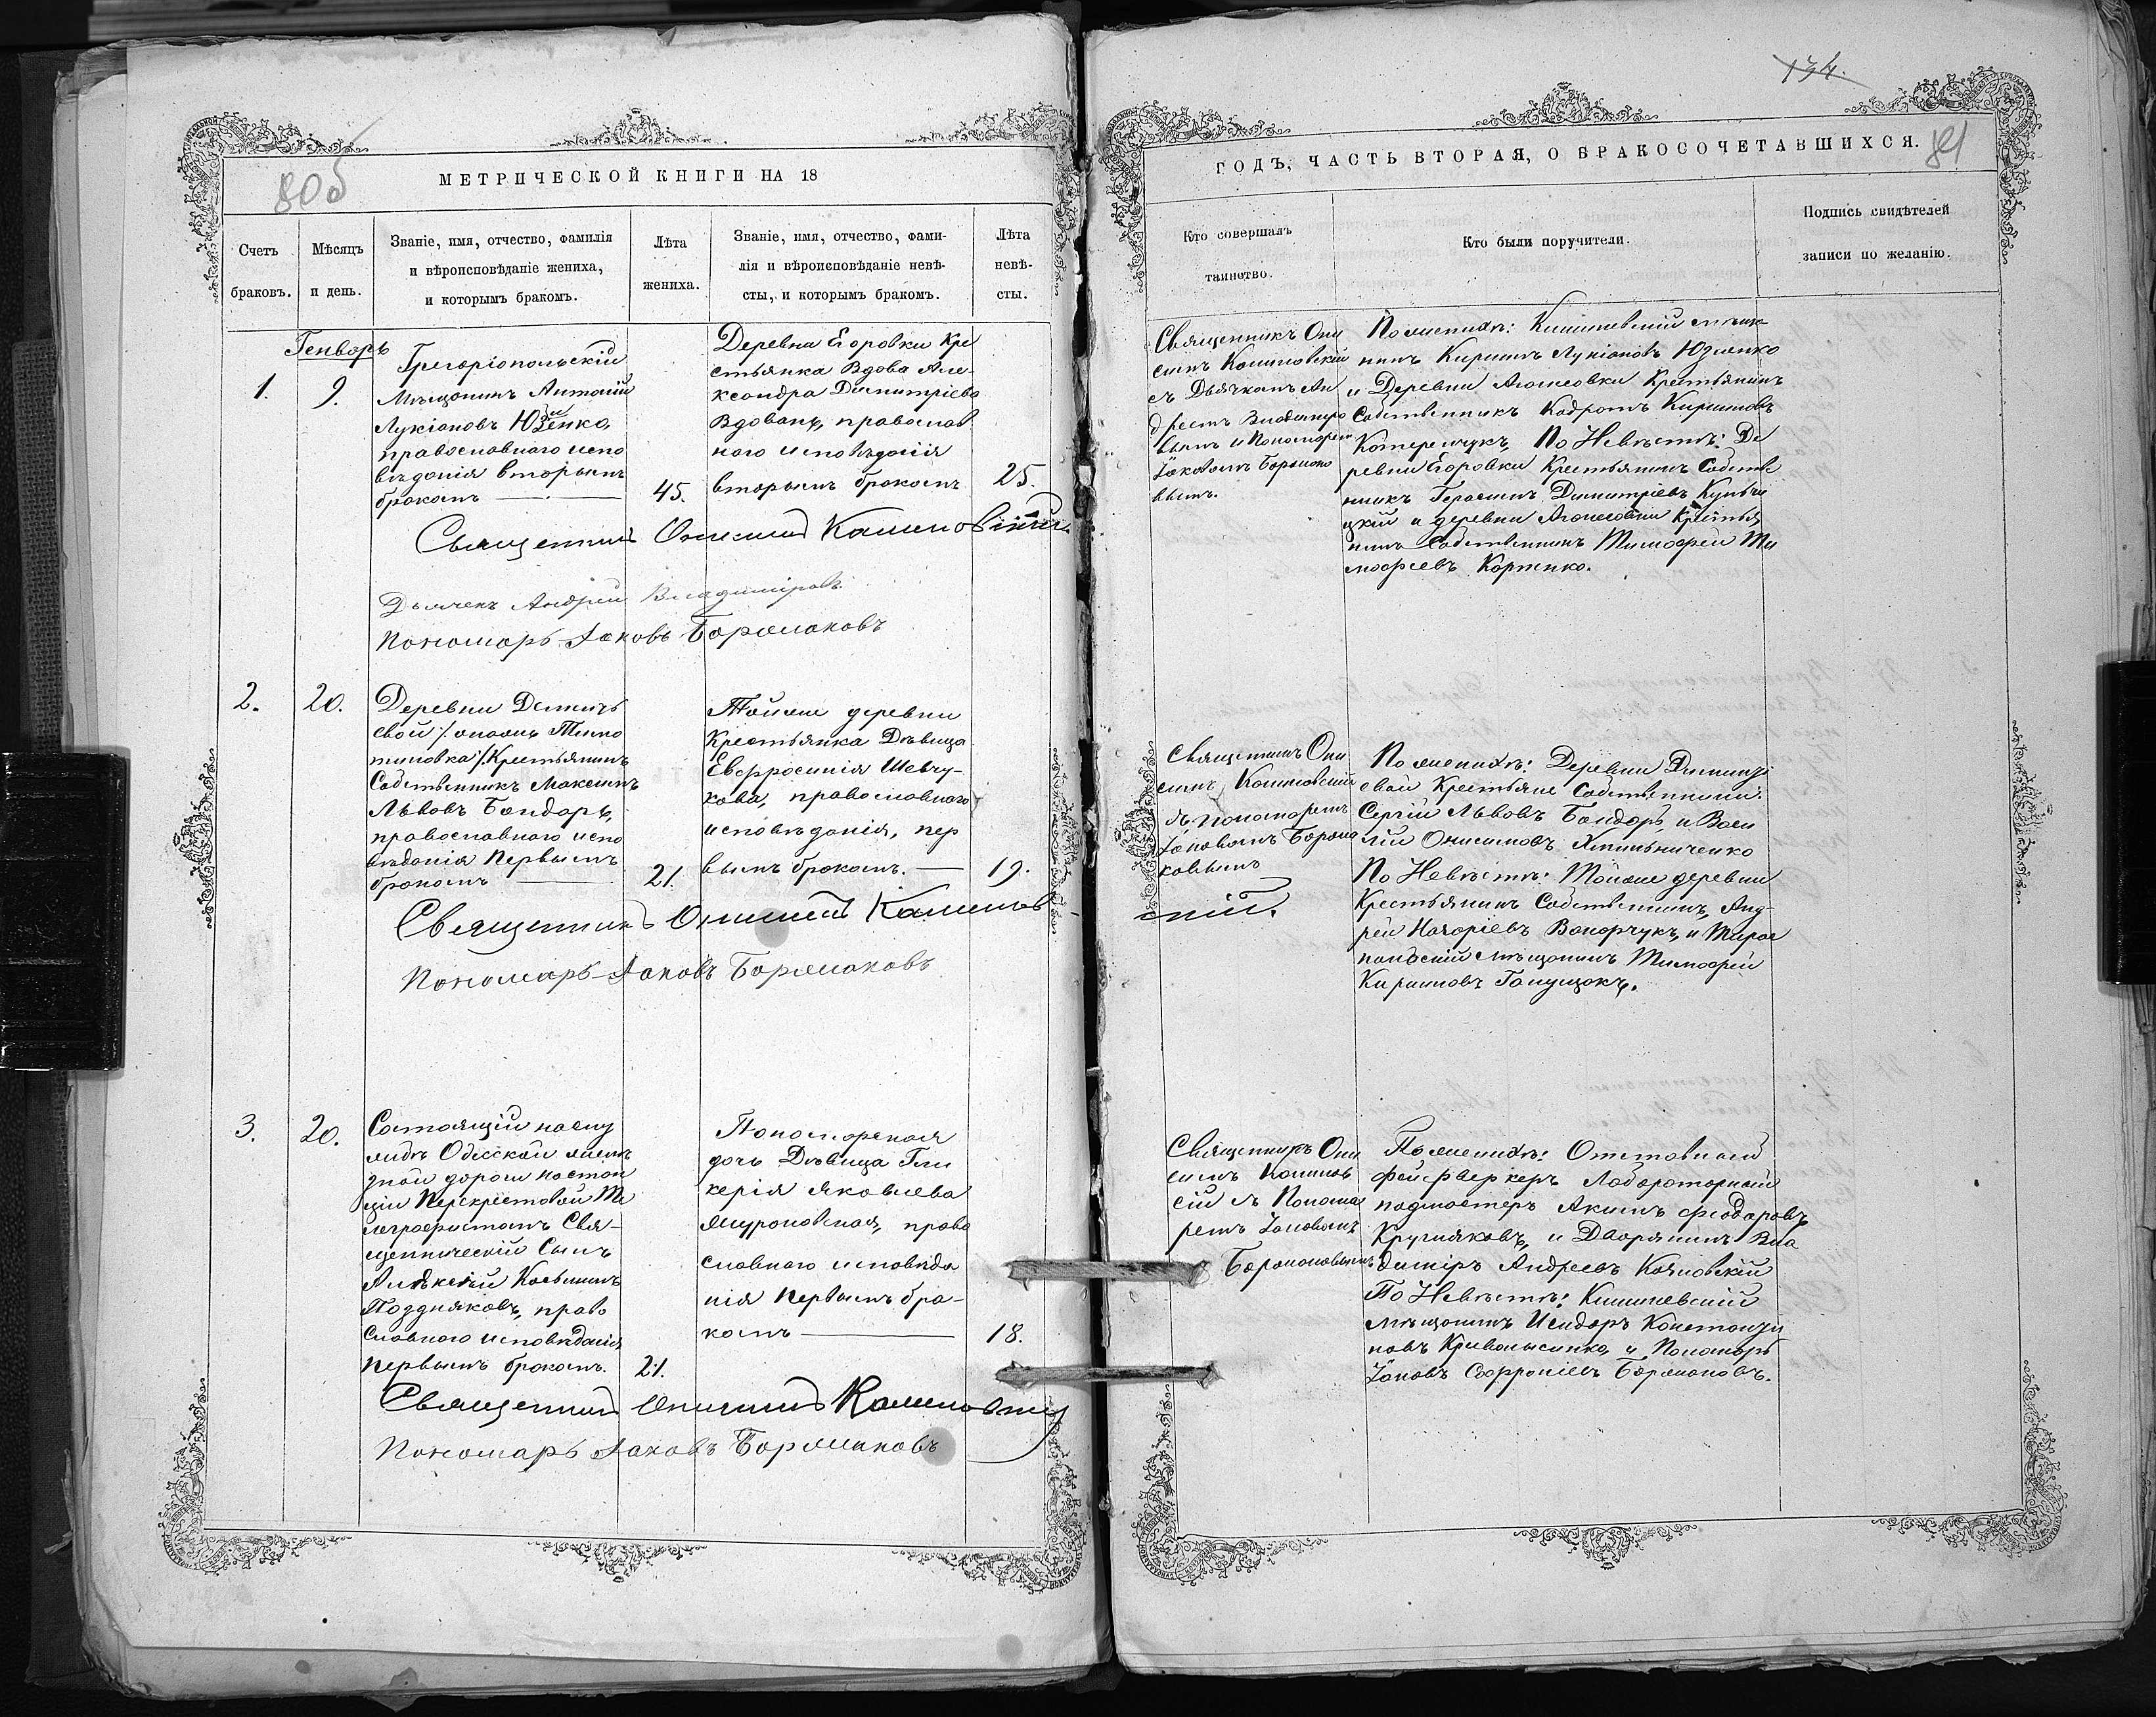 80об
МЕТРИЧЕСКОЙ КНИГИ НА 18
Счетъ браковъ.
Мѣсяцъ и день.
Званіе, имя, отчество, фамилія
и вѣроисповѣданіе жениха,
и которымъ бракомъ.
Лѣта жениха.
Званіе, имя, отчество, фами-
лія и вѣроисповѣданіе невѣ-
сты, и которымъ бракомъ.
Лѣта невѣ-
сты.
Генворь
1.
9.
Григоріопольскій
Мѣщанинъ Антоній
Лукіановъ Юзенко,
православного испо
вѣданія вторымъ
бракомъ
45.
Деревни Егоровки Кре
стьянка Вдова Але-
ксандра Димитріева
Вдованъ, православ
ного исповѣданія
вторымъ бракомъ
25.
Священникъ Онисимъ Калиновскій.
Дьячекъ Андрей Владиміровъ
Пономарь Іаковъ Боржаковъ
2.
20.
Деревни Дминтъ
свой /
Крестьянинъ
Собственникъ Максимъ
Львовъ Бондарь,
православного испо
вѣданія Первымъ
бракомъ
21.
Тойже деревни
Крестьянка Дѣвица
Евфросинія Шевчу-
кова, православного
исповѣданія, пер
вымъ бракомъ.
19.
Священникъ Онисимъ Калинов
Пономарь Іаковъ Боржаковъ
3.
20.
Состоящій на слу
жбѣ Одесской желѣ
зной дороги на стан
ціи Перекрестовой Те
леграфистомъ Свя-
щенническій Сынъ
Алѣксѣй Косьминъ
Поздняковъ, право
славного исповѣданія
первымъ бракомъ.
21.
Пономорская
дочь Дѣвица Гли
керія Яковлева
Журановская, право
славного исповѣда
нія Первымъ бра-
комъ
18.
Священникъ Онисимъ Калиновскій
Пономарь Іаковъ Боржаковъ
134.
81
ГОДЪ, ЧАСТЬ ВТОРАЯ, О БРАКОСОЧЕТАВШИХСЯ.
Кто совершалъ
таинство.
Кто были поручители.
Подпись свидѣтелей
записи по желанію.
Священникъ Они
симъ Калиновскій
съ Дьячкомъ Ан
дреемъ Владиміро
вымъ и Пономоремъ
Іаковомъ Боржако
вымъ.
По женихѣ: Кишиневскій мѣща
нинъ Кирилъ Лукіановъ Юзенко
и Деревни Крестьянинъ
Собственникъ Кодротъ Кириловъ
По Невѣстѣ: Де
ревни Егоровки Крестьянинъ Собстве
нникъ Герасимъ Димитріевъ
и деревни Крестья
нинъ Собственникъ Тимофей Ти
мофеевъ Корженко.
Священникъ Они
симъ Калиновскій
съ Пономоремъ
Іаковомъ Боржа
ковымъ
скій.
По женихѣ: Деревни
свой Крестьяне Собственники:
Сергій Львовъ Бондарь, и Васи
лій Онисимовъ
По Невѣстѣ: Тойже деревни
Крестьянинъ Собственникъ, Анд-
рей Вакарчукъ, и Тирас
польскій мѣщанинъ Тимофей
Кириловъ Ганущакъ.
Священникъ Они
симъ Калинов
скій съ Понома
ремъ Іаковомъ
Боржаковымъ.
По женихѣ: Отставной
фейерверкеръ Лабораторный
подмастеръ Акимъ Феодоровъ
Кругляковъ, и Дворянинъ Вла
диміръ Андреевъ
По Невѣстѣ: Кишиневскій
мѣщанинъ Исидоръ Константи
новъ и Пономарь
Іаковъ Софроніевъ Боржаковъ.